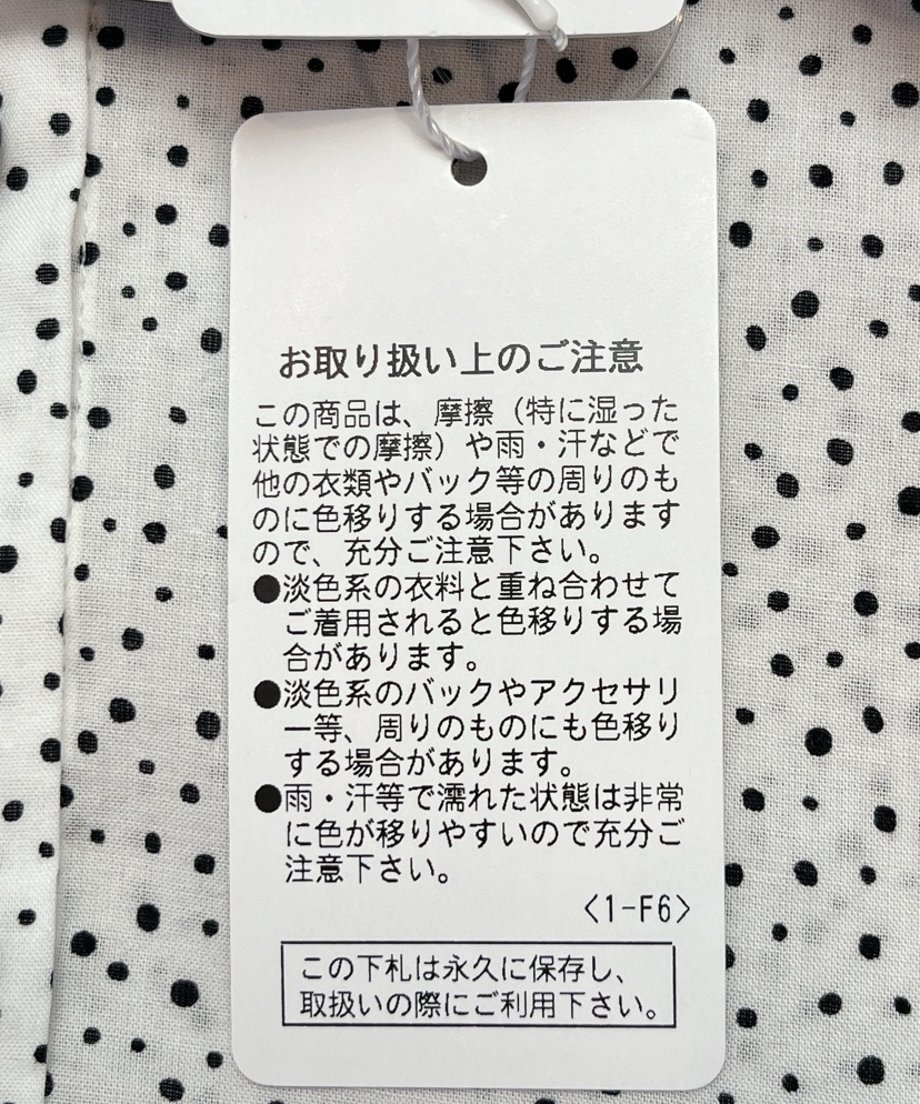 お取り扱い上のご注意
この商品は、摩擦（特に湿った
状態での摩擦）や雨・汗などで
他の衣類やバック等の周りのも
のに色移りする場合があります
ので、充分ご注意下さい。
●淡色系の衣料と重ね合わせて
ご着用されると色移りする場
合があります。
●淡色系のバックやアクセサリ
ー等、周りのものにも色移り
する場合があります。
●雨・汗等で濡れた状態は非常
に色が移りやすいので充分ご
注意下さい。
<1-F6>
この下札は永久に保存し、
取扱いの際にご利用下さい。